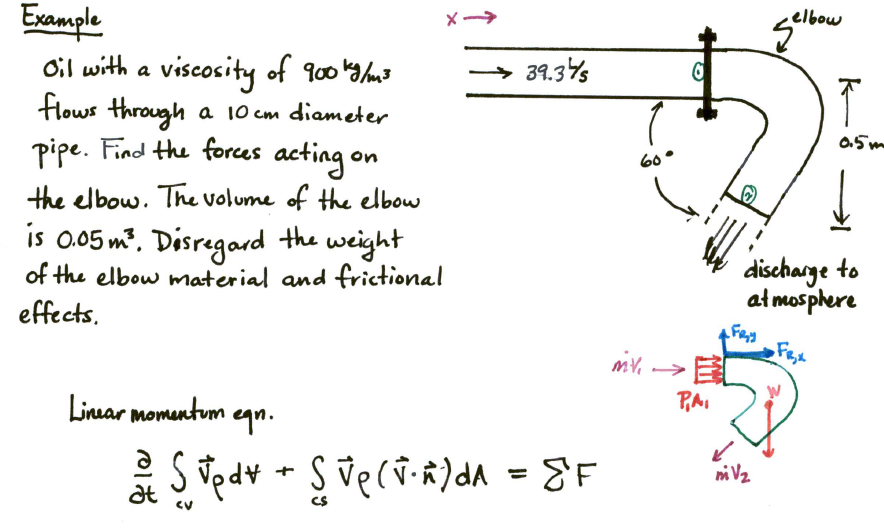 Example
Oil with a viscosity of 900 kg/m3
flows through a 10 cm diameter
pipe. Find the forces acting on
the elbow. The volume of the elbow
is 0.05 m³. Disregard the weight
of the elbow material and frictional
effects.
x →
elbow
→ 39.3 L/s
①
60°
0.5 m
②
discharge to
atmosphere
F_R,y
F_R,x
ṁV₁ →
P₁A₁
W
ṁV₂
Linear momentum eqn.
∂/∂t ∫_cv V⃗ρdV̶ + ∫_cs V⃗ρ(V⃗·n⃗)dA = ΣF